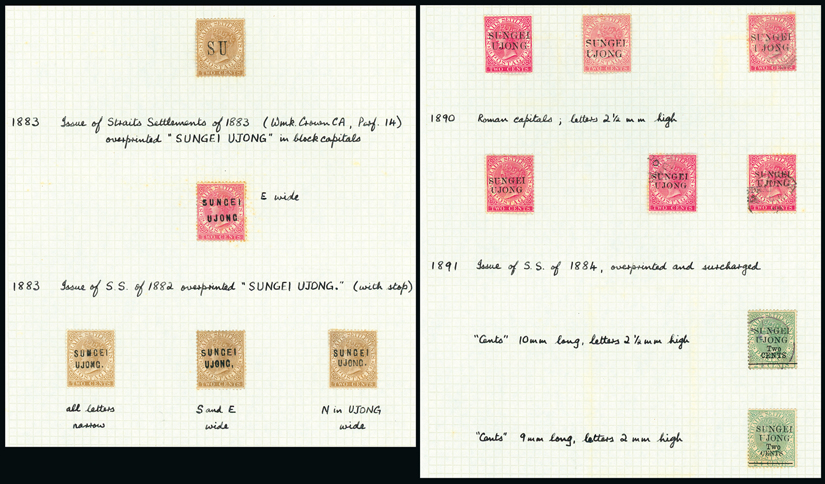 SU
TWO CENTS
1883 Issue of Straits Settlements of 1883 (Wmk. Crown CA, Perf. 14)
overprinted "SUNGEI UJONG" in block capitals
SUNGEI
UJONG
TWO CENTS
E wide
1883 Issue of S.S. of 1882 overprinted "SUNGEI UJONG." (with stop)
SUNGEI
UJONG.
TWO CENTS
SUNGEI
UJONG.
TWO CENTS
SUNGEI
UJONG.
TWO CENTS
all letters
narrow
S and E
wide
N in UJONG
wide
SUNGEI
UJONG
TWO CENTS
SUNGEI
UJONG
TWO CENTS
SUNGEI
UJONG
TWO CENTS
1890 Roman capitals; letters 2½ mm high
SUNGEI
UJONG
TWO CENTS
SUNGEI
UJONG
TWO CENTS
SUNGEI
UJONG
TWO CENTS
1891 Issue of S.S. of 1884, overprinted and surcharged
"Cents" 10mm long, letters 2½ mm high
SUNGEI
UJONG
Two
CENTS
"Cents" 9mm long, letters 2 mm high
SUNGEI
UJONG
Two
CENTS